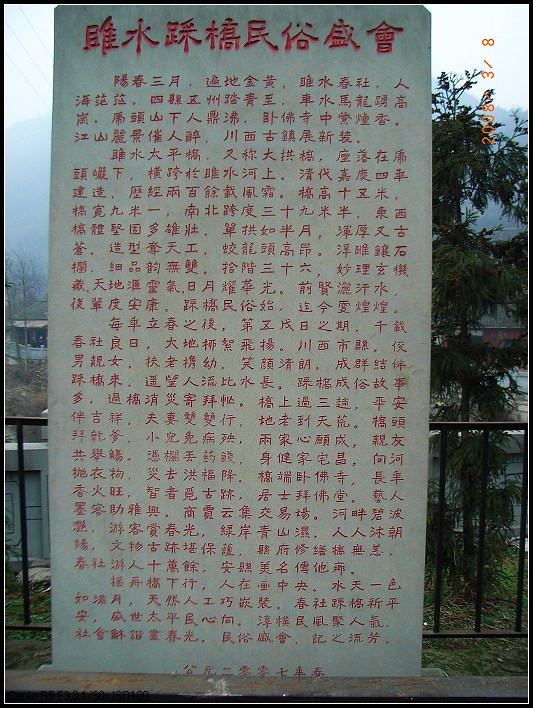 睢水踩橋民俗盛會
陽春三月，遍地金黃，睢水春社，人
海茫茫。四縣五州踏青至，車水馬龍踴高
崗。虎頭山下人鼎沸，臥佛寺中縈煙香。
江山麗景催人醉，川西古鎮展新裝。
睢水太平橋，又称大拱橋，座落在虎
頭巖下，橫跨於睢水河上。清代嘉慶四年
建造，歷經兩百餘載風霜。橋高十五米，
橋寬九米一，南北跨度三十九米半，東西
橋體堅固多雄壯，單拱如半月，渾厚又古
蒼。造型奪天工，蛟龍頭高昂。浮雕鑲石
欄，細品韵無雙。拾階三十六，妙理玄機
藏。天地滙靈氣，日月耀華光。前賢灑汗水，
後輩度安康。踩橋民俗始，迄今壹煌煌。
每年立春之後，第五戊日之期，千載
春社良日，大地柳絮飛揚。川西市縣，俊
男靚女，扶老攜幼，笑顏清朗，成群結伴
踩橋來，遥望人流比水長。踩橋成俗故事
多，過橋消災寄拜忙。橋上過三趟，平安
伴吉祥，夫妻雙雙行，地老到天荒。橋頭
拜乾爹，小兒免病殃，兩家心願成，親友
共舉觴。憑欄丢药錢，身健家宅昌。向河
抛衣物，災去洪福降。橋端臥佛寺，長年
香火旺，智者覓古跡，居士拜佛堂。藝人
墨客助雅興，商賈云集交易場。河畔碧波
艷，游客賞春光，緑岸青山濕，人人沐朝
陽。文物古跡堪保護，縣府修繕橋無恙，
春社游人十萬餘，安縣美名傳他鄉。
摇舟橋下行，人在画中央。水天一色
如满月，天然人工巧嵌裝。春社踩橋祈平
安，盛世太平民心向。淳樸民風聚人氣，
社會龢諧盡春光。民俗盛會，記之流芳。
公元二零零七年春
2008/ 3/ 8